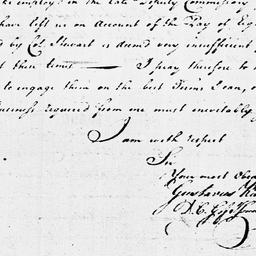 employ in the late Deputy Commissary
have left in on Account of the Pay of
d by Col. Stewart is deem'd very insufficient f
at these times — I pray therefore to
to engage them on the best Terms I can, o
required from me must inevitably
I am with respect
Sir
Your most Obed
Gustavus